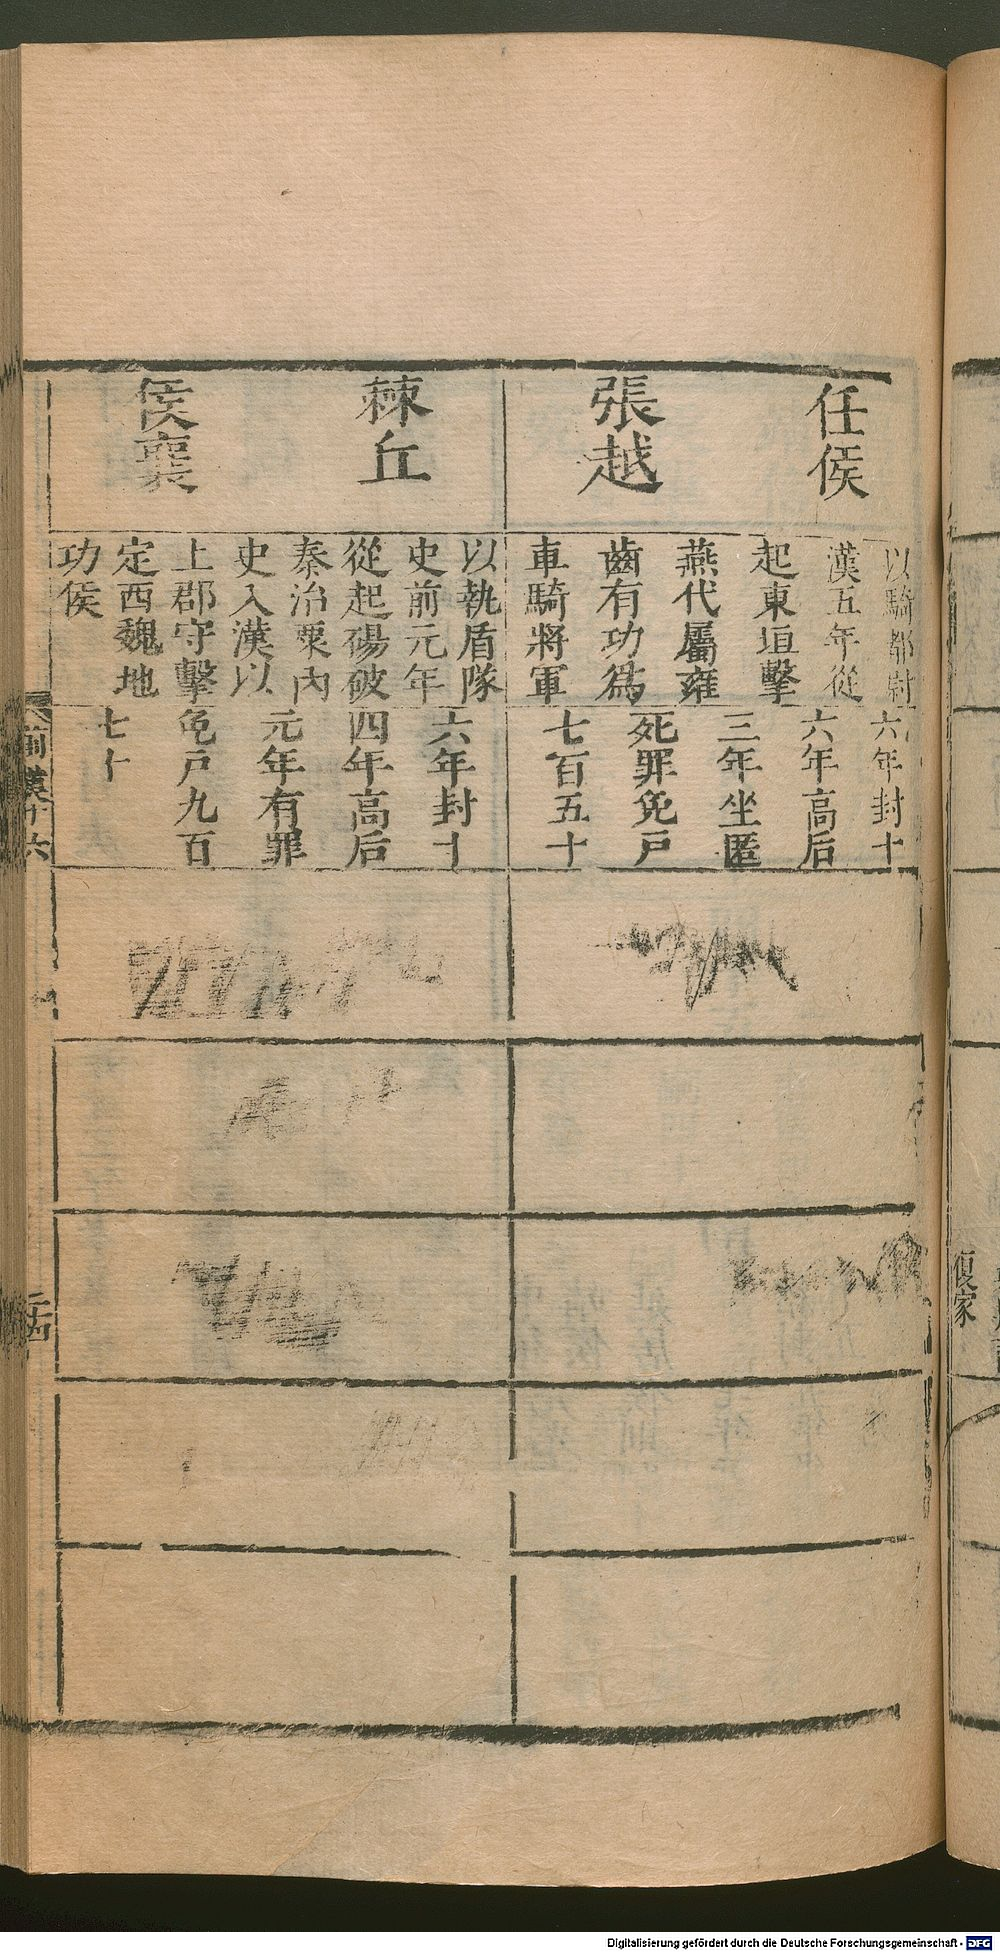 任侯
張越
以騎都尉
漢五年從
起東垣擊
燕代屬雍
齒有功為
車騎將軍
六年封十
六年高后
三年坐匿
死罪免戶
七百五十
棘丘
侯襄
以執盾隊
史前元年
從起碭破
秦治粟內
史入漢以
上郡守擊
定西魏地
功侯
六年封十
四年高后
元年有罪
免戶九百
七十
前漢十六
二十四
復家
Digitalisierung gefördert durch die Deutsche Forschungsgemeinschaft - DFG